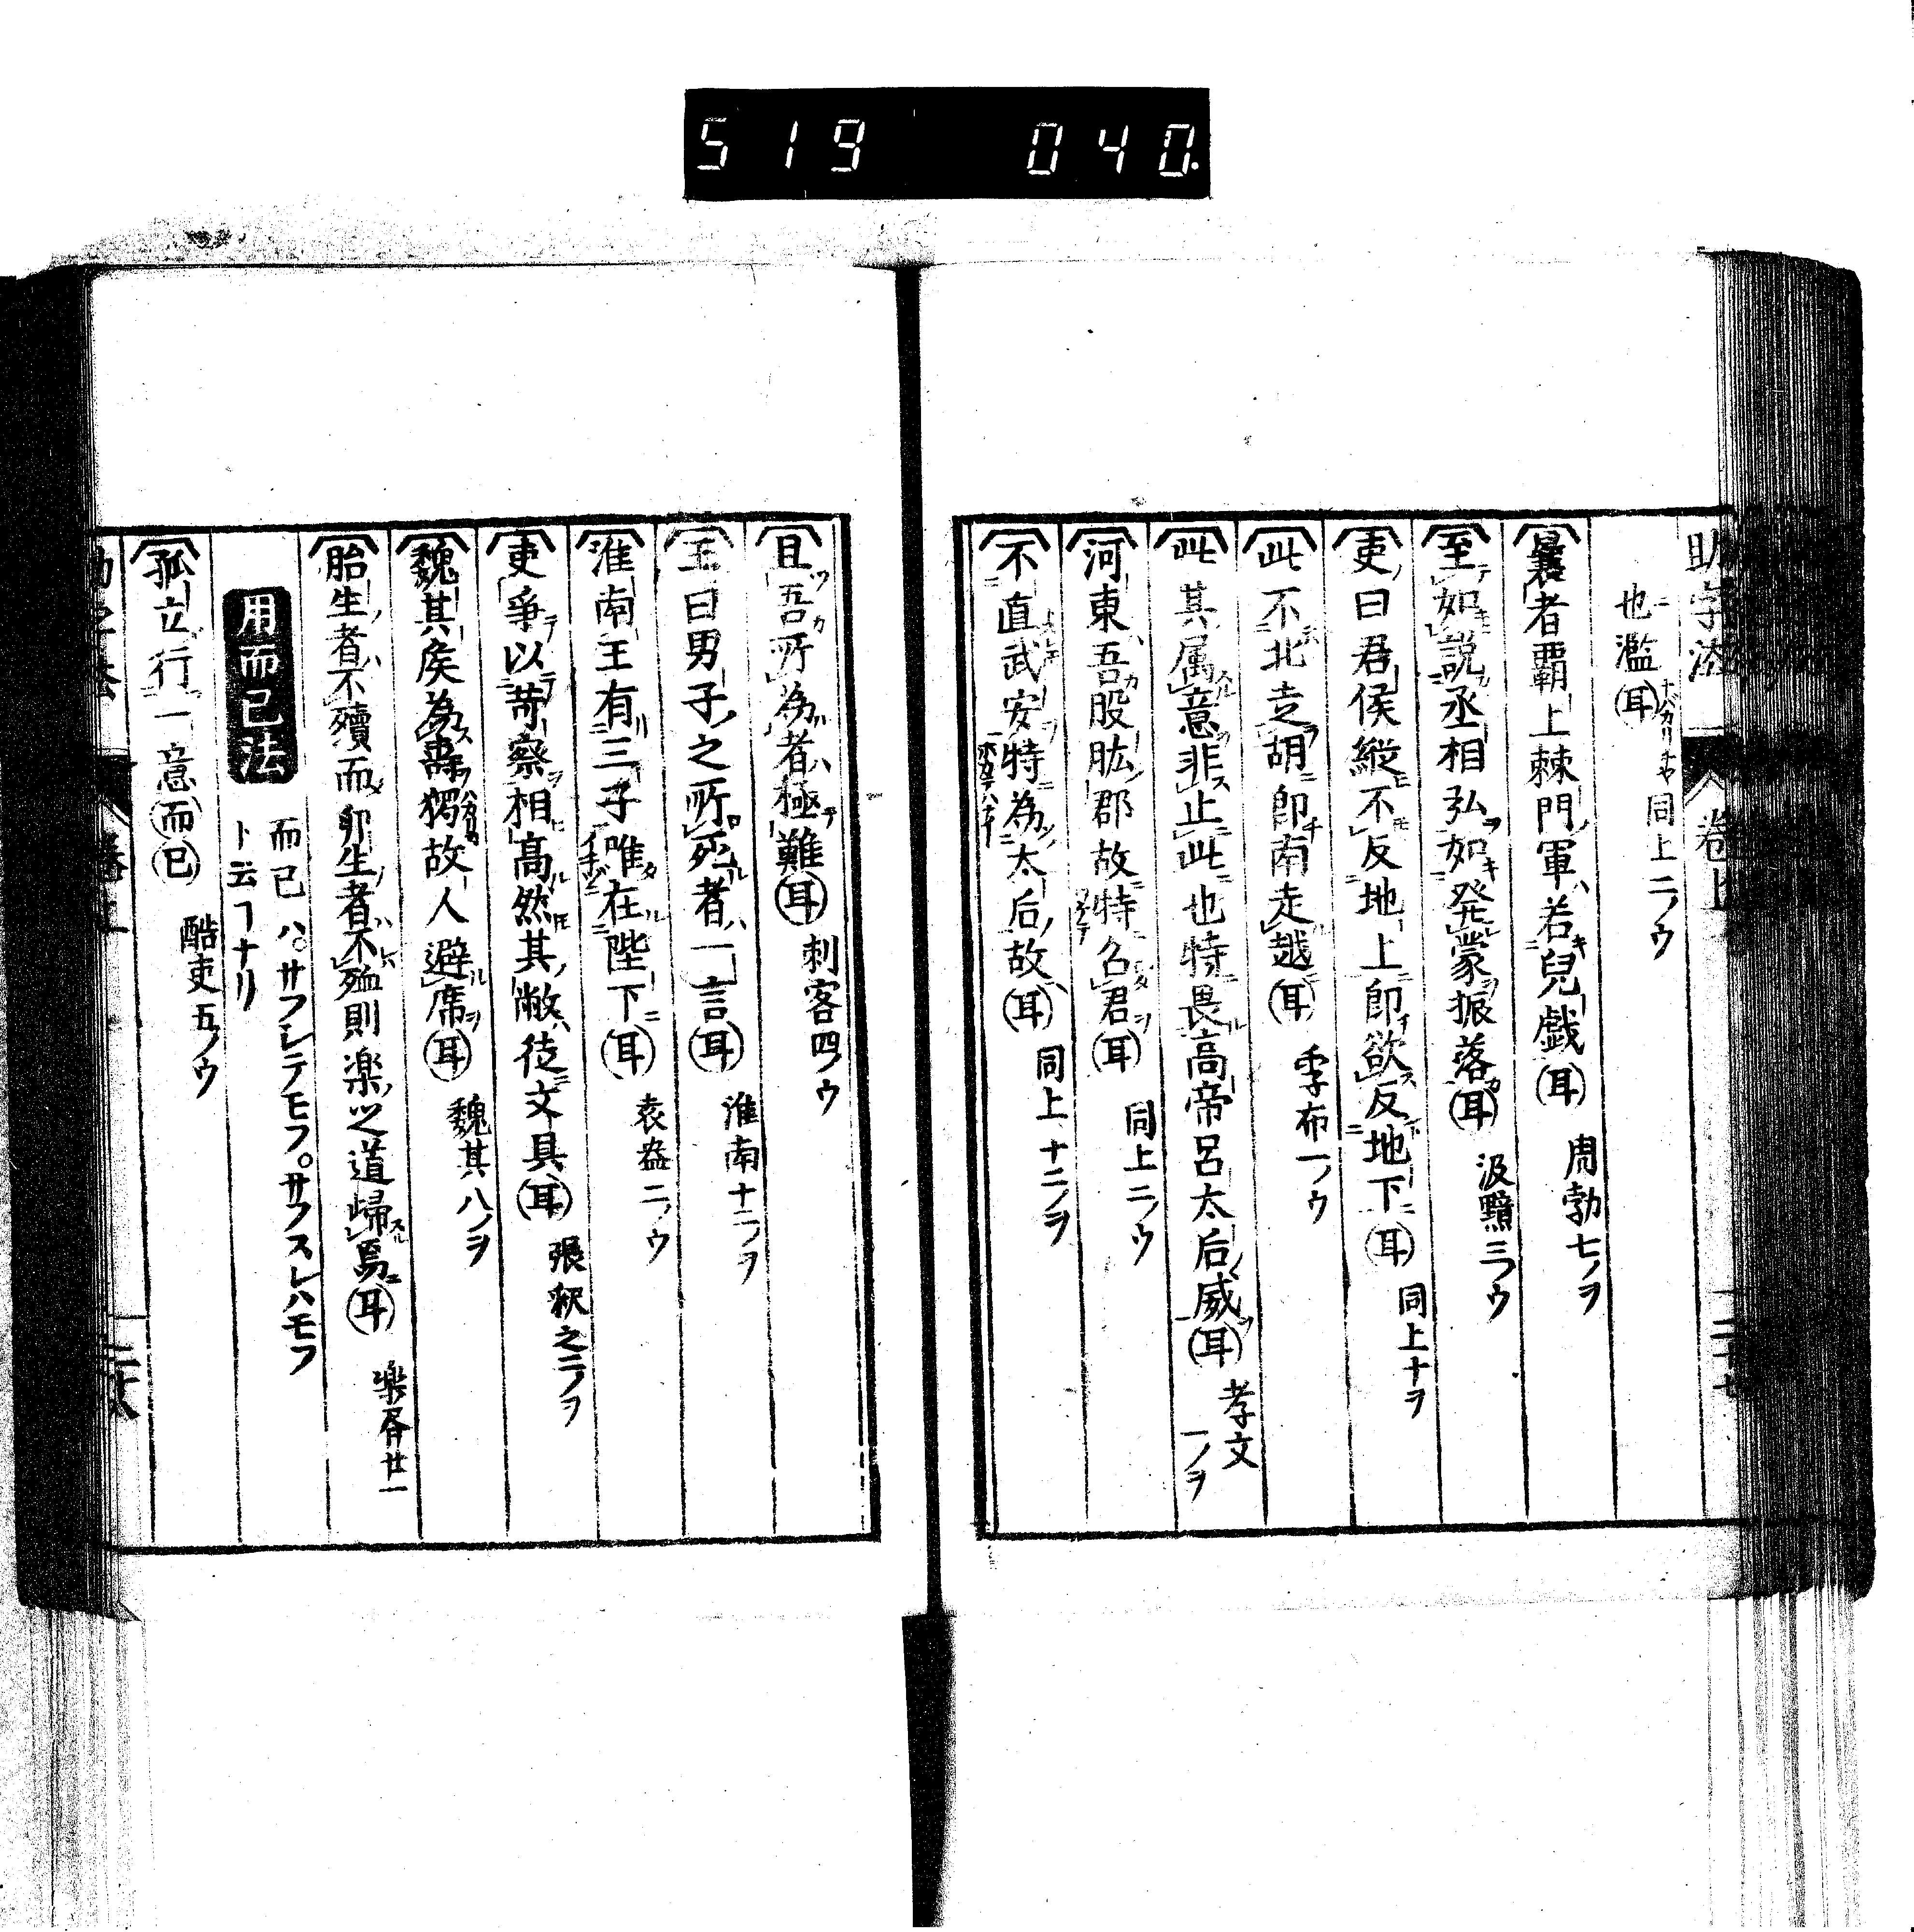 519 040
助字法 卷上
也濫耳 同上二ノウ
曩者覇上棘門軍若兒戯耳 周勃七ノヲ
至如説丞相弘如発蒙振落耳 汲黯三ノウ
吏曰君侯縦不反地上即欲反地下耳 同上十ヲ
此不北走胡即南走越耳 季布一ノウ
此其属意非止此也特畏高帝呂太后威耳 孝文一ノヲ
河東吾股肱郡故特召君耳 同上二ノウ
不直武安特為太后故耳 同上十二ノヲ
且吾所為者極難耳 刺客四ノウ
王曰男子之所死者一言耳 淮南十二ノヲ
淮南王有三子唯在陛下耳 袁盎二ノウ
吏爭以苛察相髙然其敝徒文具耳 張釈之二ノヲ
魏其矦為壽獨故人避席耳 魏其八ノヲ
胎生者不殰而卵生者不殈則楽之道歸焉耳 樂畧廿一
用而已法
而已ハ。サフシテモフ。サフスレハモフ
ト云ヿナリ
孤立行一意而已 酷吏五ノウ